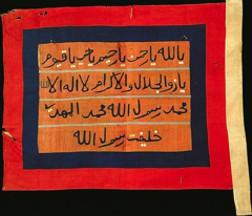 يالله يا رحمن يا رحيم يا حي يا قيوم
يا ذو الجلال والاكرام لا اله الا الله
محمد رسول الله محمد المهدي
خليفت رسول الله